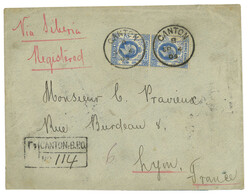 Via Siberia
Registered
CANTON
CANTON
Monsieur C. Pravieux
Rue Burdeau
CANTON.B.P.O.
No 114
Lyon
France